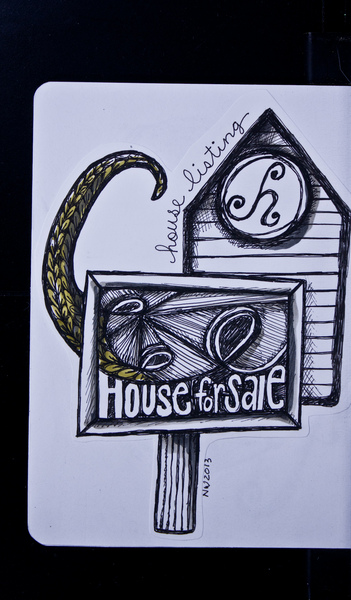 house listing
House for Sale
NW2013